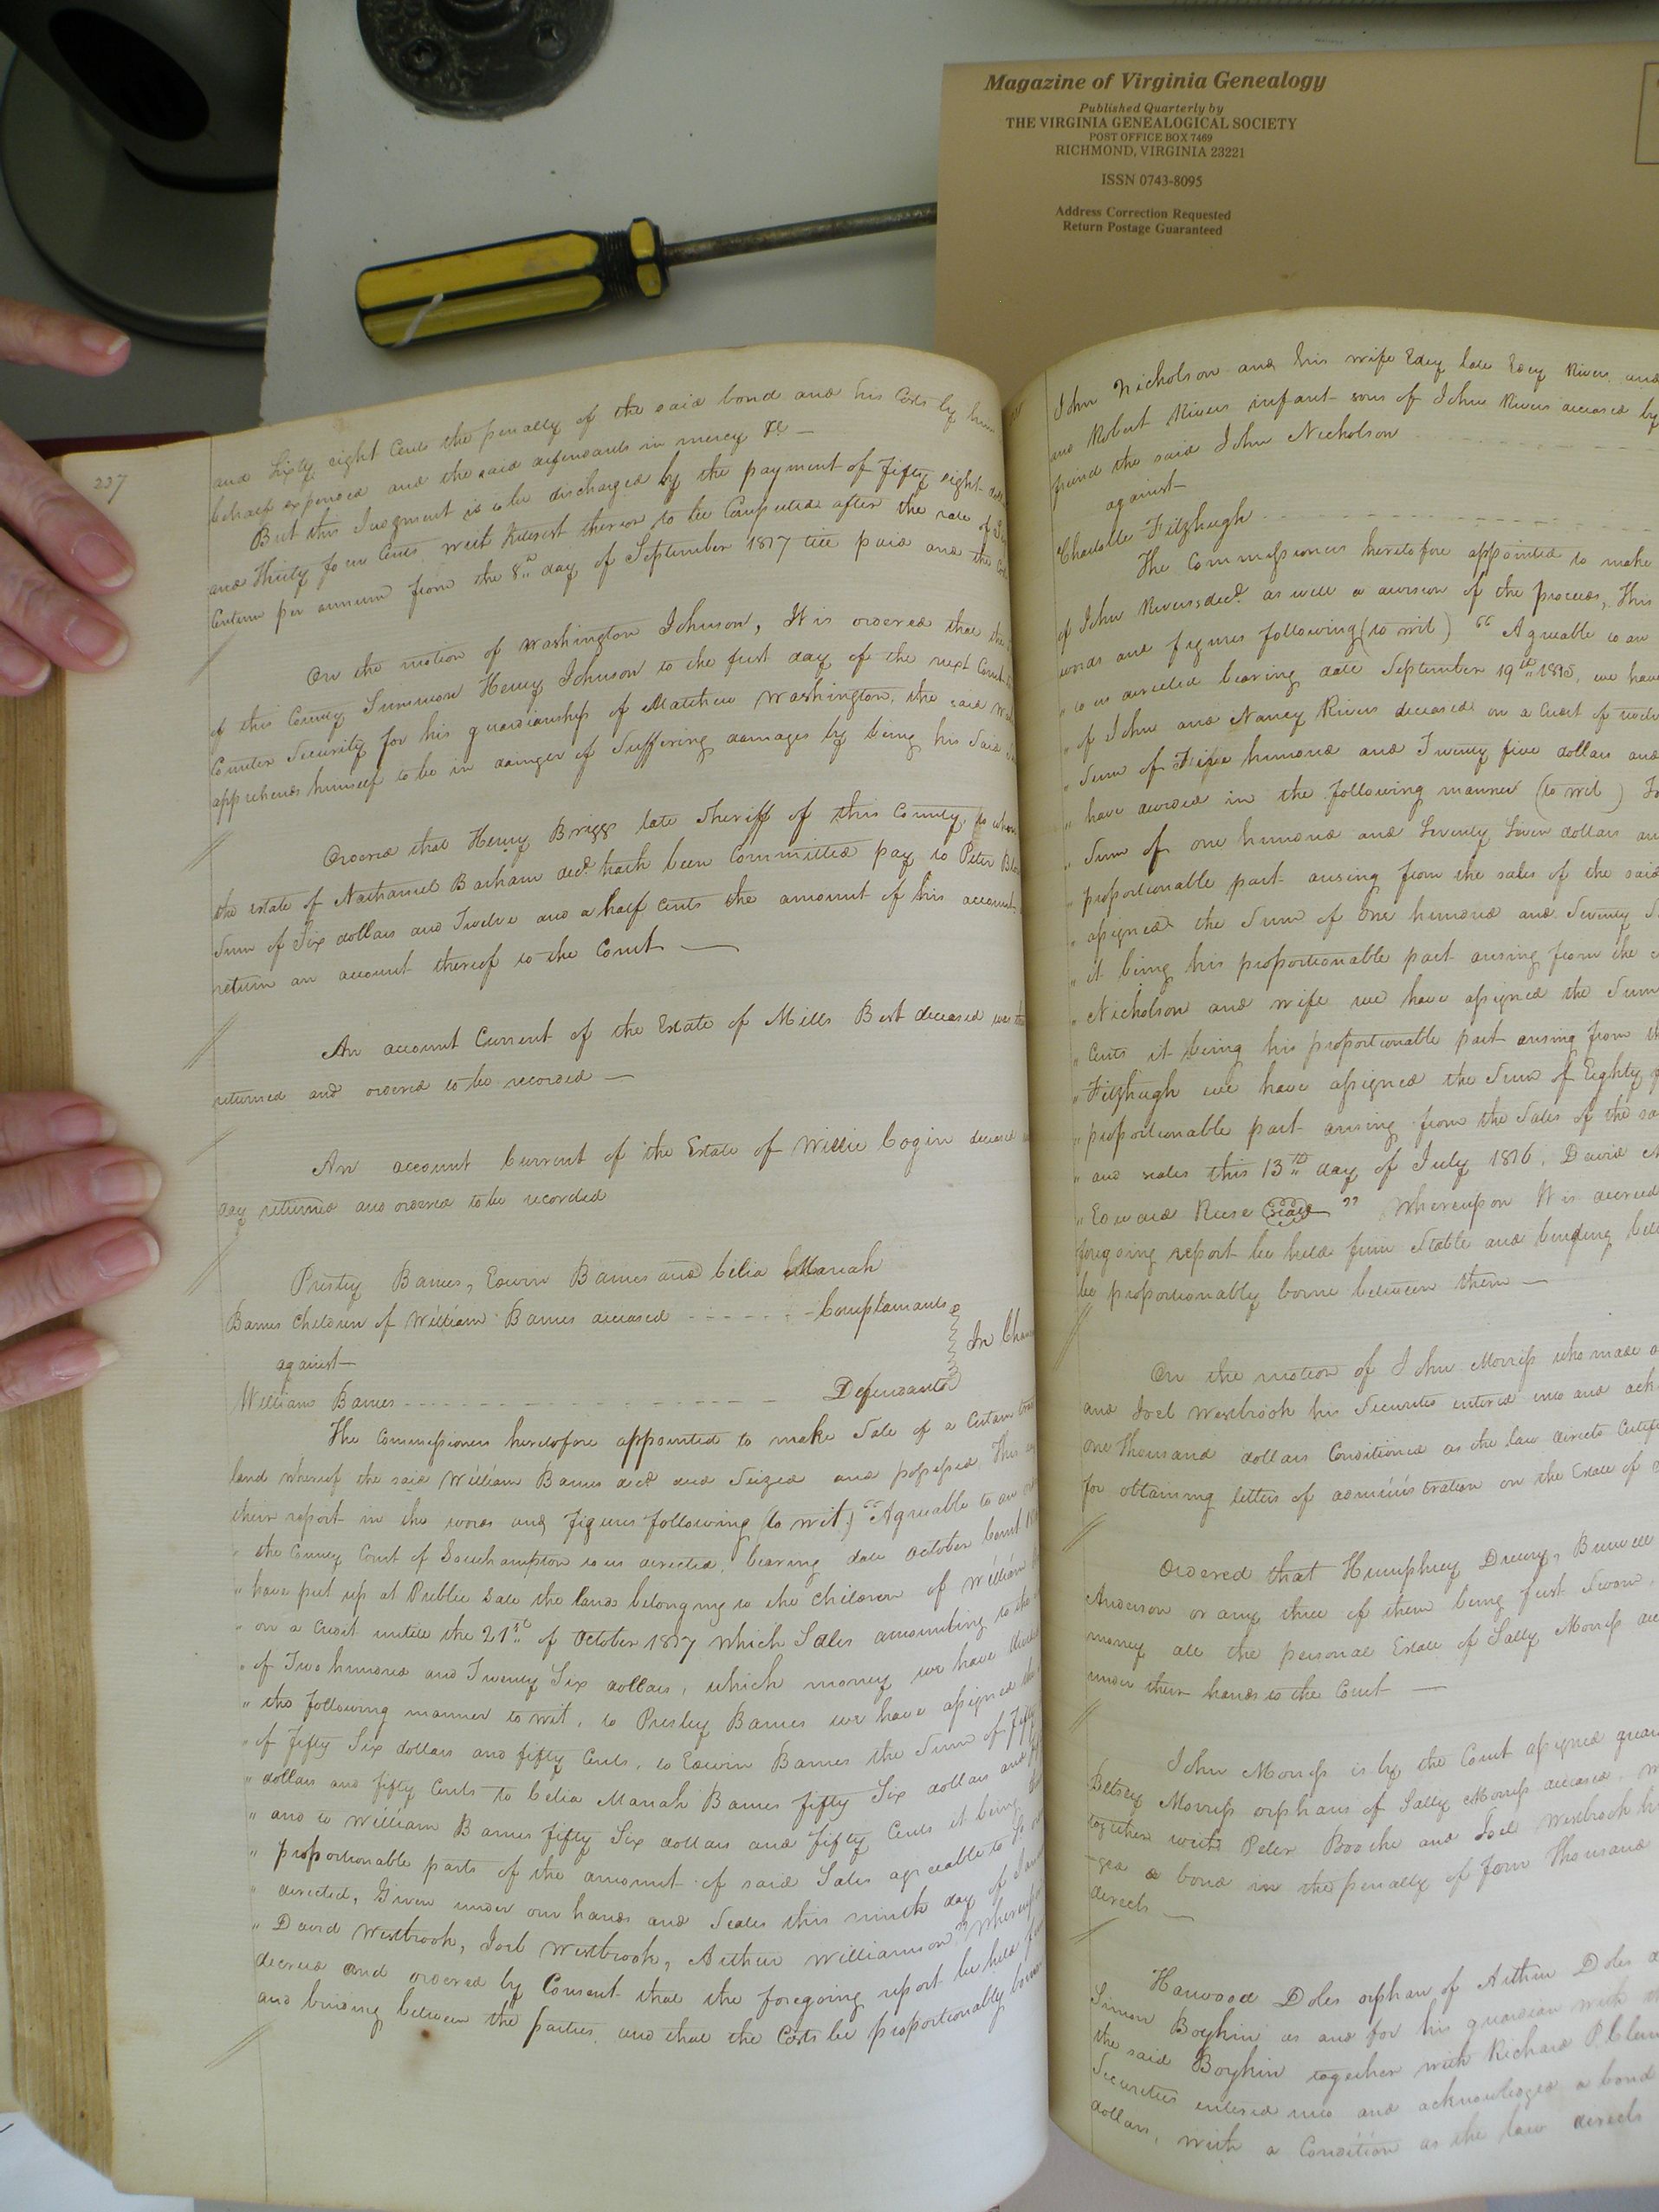 Magazine of Virginia Genealogy
Published Quarterly by
THE VIRGINIA GENEALOGICAL SOCIETY
POST OFFICE BOX 7469
RICHMOND, VIRGINIA 23221
ISSN 0743-8095
Address Correction Requested
Return Postage Guaranteed
237
and Sixty eight Cents the penalty of the said bond and his Costs by him
behalf expended and the said defendants in mercy &c
But this Judgment is to be discharged by the payment of Fifty eight
and Thirty four Cents with Interest thereon to be Computed after the rate of
Centum per annum from the 8th day of September 1817 till paid and the
On the motion of Washington Johnson, It is ordered that the
of this County Summon Henry Johnson to the first day of the next Court
Counter Security for his guardianship of Matthew Washington, the said
apprehends himself to be in danger of Suffering damages by being his Said
Ordered that Henry Briggs late Sheriff of this County, to whom
the estate of Nathaniel Barham decd. hath been Committed pay to Peter
Sum of Six dollars and Twelve and a half Cents the amount of his account
return an account thereof to the Court
An account Current of the Estate of Mills Best deceased
returned and ordered to be recorded
An account Current of the Estate of Willie Cogin deceased
day returned and ordered to be recorded
Presley Barnes, Edwin Barnes and Celia Mariah
Barnes Children of William Barnes deceased Complainants
In
against
William Barnes Defendants
The Commissioners heretofore appointed to make Sale of a Certain
land whereof the said William Barnes decd. died Seized and possessed This
their report in the words and figures following (to wit) "Agreeable to an
the County Court of Southampton to us directed, bearing date October Court
" have put up at Public Sale the lands belonging to the Children of William
" on a Credit untill the 21st of October 1817 which Sales amounting to the
" of Two hundred and Twenty Six dollars, which money we have
" the following manner to wit, to Presley Barnes we have assigned the
" of Fifty Six dollars and fifty Cents, to Edwin Barnes the Sum of Fifty
" dollars and fifty Cents to Celia Mariah Barnes Fifty Six dollars and
" and to William Barnes Fifty Six dollars and Fifty Cents it being
" proportionable parts of the amount of said Sales agreeable to
" directed, Given under our hands and Seales this ninth day of
" David Westbrook, Joel Westbrook, Arthur Williamson" Whereupon
decreed and ordered by Consent that the foregoing report be held
and binding between the parties and that the Costs be proportionably borne
John Nicholson and his wife Edey late Edey Rivers and
and Robert Rivers infant sons of John Rivers deceased by
friend the said John Nicholson
against
Charlotte Fitzhugh
The Commissioners heretofore appointed to make
of John Rivers decd. as well a division of the proceeds, This
words and figures following (to wit) "Agreeable to an
" to us directed bearing date September 19th 1815, we have
" of John and Nancy Rivers deceased on a Credit of
" Sum of Five hundred and Twenty five dollars and
" have divided in the following manner (to wit)
" Sum of one hundred and Seventy Seven dollars
" proportionable part arising from the sales of the said
" assigned the Sum of One hundred and Seventy
" it being his proportionable part arising from the
" Nicholson and wife we have assigned the Sum
" Cents it being his proportionable part arising from
" Fitzhugh we have assigned the Sum of Eighty
" proportionable part arising from the Sales of the
" and seales this 13th day of July 1816, David
" Edward Reese Seale " Whereupon It is decreed
foregoing report be held firm Stable and binding
be proportionably borne between them
On the motion of John Morriss who made
and Joel Westbrook his Securities entered into and
One Thousand dollars Conditioned as the law directs
for obtaining letters of administration on the Estate of
Ordered that Humphrey Drewry, Burwell
Anderson or any three of them being first Sworn,
money all the personal Estate of Sally Morriss
under their hands to the Court
John Morriss is by the Court assigned
Betsey Morriss orphans of Sally Morriss deceased,
together with Peter Boothe and Joel Westbrook
-ged a bond in the penalty of Four Thousand
directs
Harwood Doles orphan of Arthur Doles
Simon Boykin as and for his guardian with
the said Boykin together with Richard P. 
Securities entered into and acknowledged a bond
dollars, with a Condition as the law directs